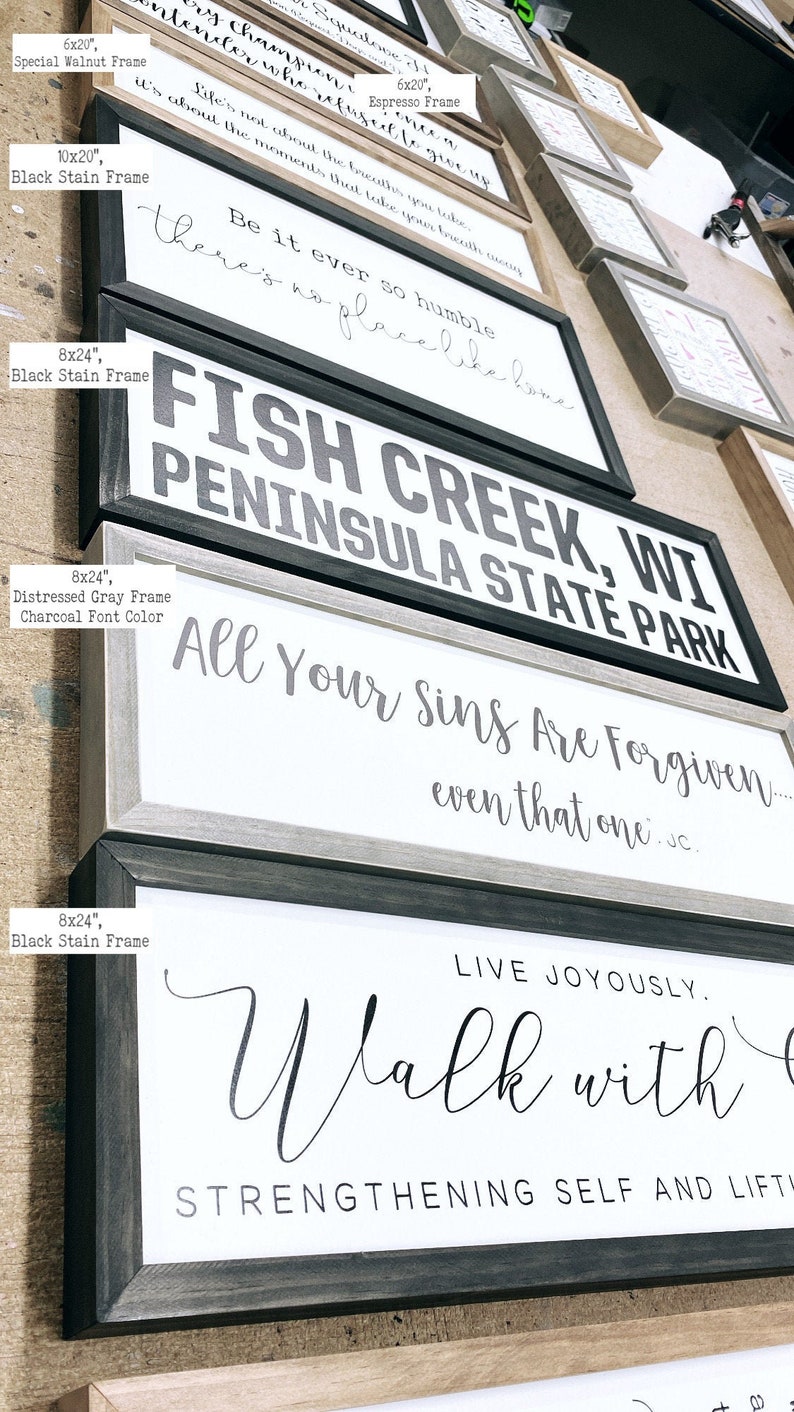 6x20",
Special Walnut Frame
6x20",
Espresso Frame
contender who refused to give up
Life's not about the breaths you take,
it's about the moments that take your breath away
10x20",
Black Stain Frame
Be it ever so humble
there's no place like home
8x24",
Black Stain Frame
FISH CREEK, WI
PENINSULA STATE PARK
8x24",
Distressed Gray Frame
Charcoal Font Color
All Your Sins Are Forgiven....
even that one". JC.
8x24",
Black Stain Frame
LIVE JOYOUSLY.
Walk with
STRENGTHENING SELF AND LIFTI